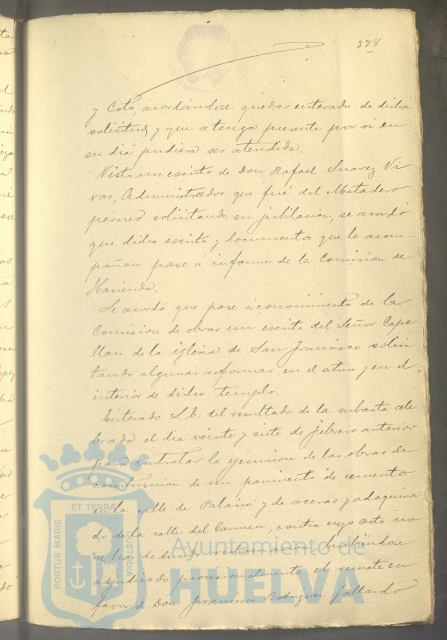 378
y Coto, acordándose quedar enterado de dicha
solicitud y que a tenga presente por si en
su dia pudiera ser atendida.
Visto un escrito de Don Rafael Suarez Vi-
vas, Administrador que fué del Matadero
público solicitando su jubilacion, se acordó
que dicho escrito y documentos que le acom-
pañan pase á informe de la Comision de
Hacienda.
Se acordó que pase á conocimiento de la
Comision de obras un escrito del Señor Cape-
llan de la iglesia de San Francisco solici-
tando algunas reformas en el atrio y en el
interior de dicho templo.
Enterado S. E. del resultado de la subasta cele-
brada el dia veinte y siete de febrero anterior
para contratar la ejecucion de las obras de
construccion de un pavimento de cemento
en la calle de Palacio y de aceras y adoquina-
do de la calle del Carmen, contra cuyo acto no
se ha
adjudicado provisionalmente el remate en
favor de Don Francisco Rodriguez Gallardo
PORTUS MARIS
ET TERRÆ
CUSTODIA
Ayuntamiento de
HUELVA